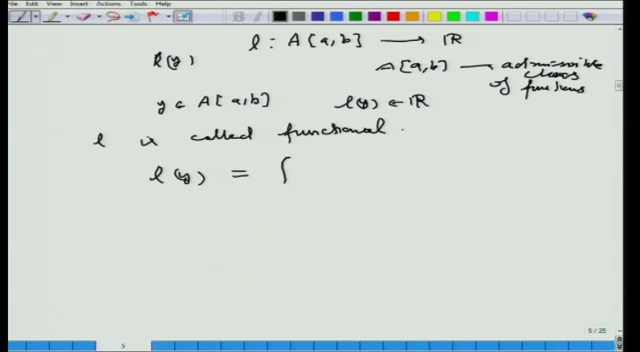 File Edit View Insert Actions Tools Help
l : A[a,b] → IR
l(y)
A[a,b] — admissible class of functions
y ∈ A[a,b]    l(y) ∈ IR
l is called functional.
l(y) = ∫
5 / 25
5